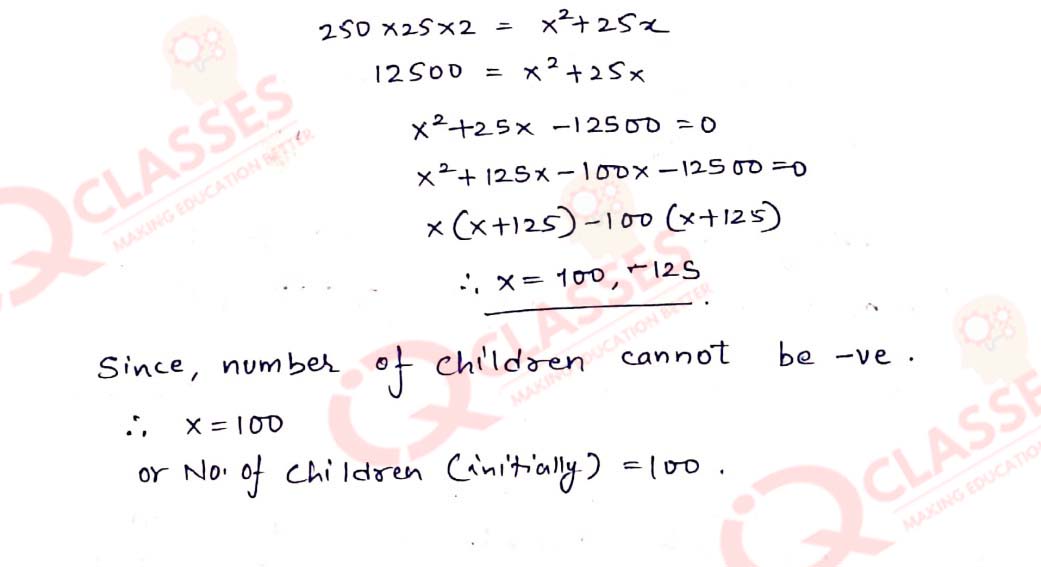 250 × 25 × 2 = x² + 25x
12500 = x² + 25x
x² + 25x - 12500 = 0
x² + 125x - 100x - 12500 = 0
x (x + 125) - 100 (x + 125)
∴ x = 100, -125
Since, number of children cannot be -ve.
∴ x = 100
or No. of children (initially) = 100.
QCLASSES
MAKING EDUCATION BETTER
QCLASSES
MAKING EDUCATION BETTER
QCLASSE
MAKING EDUCATION